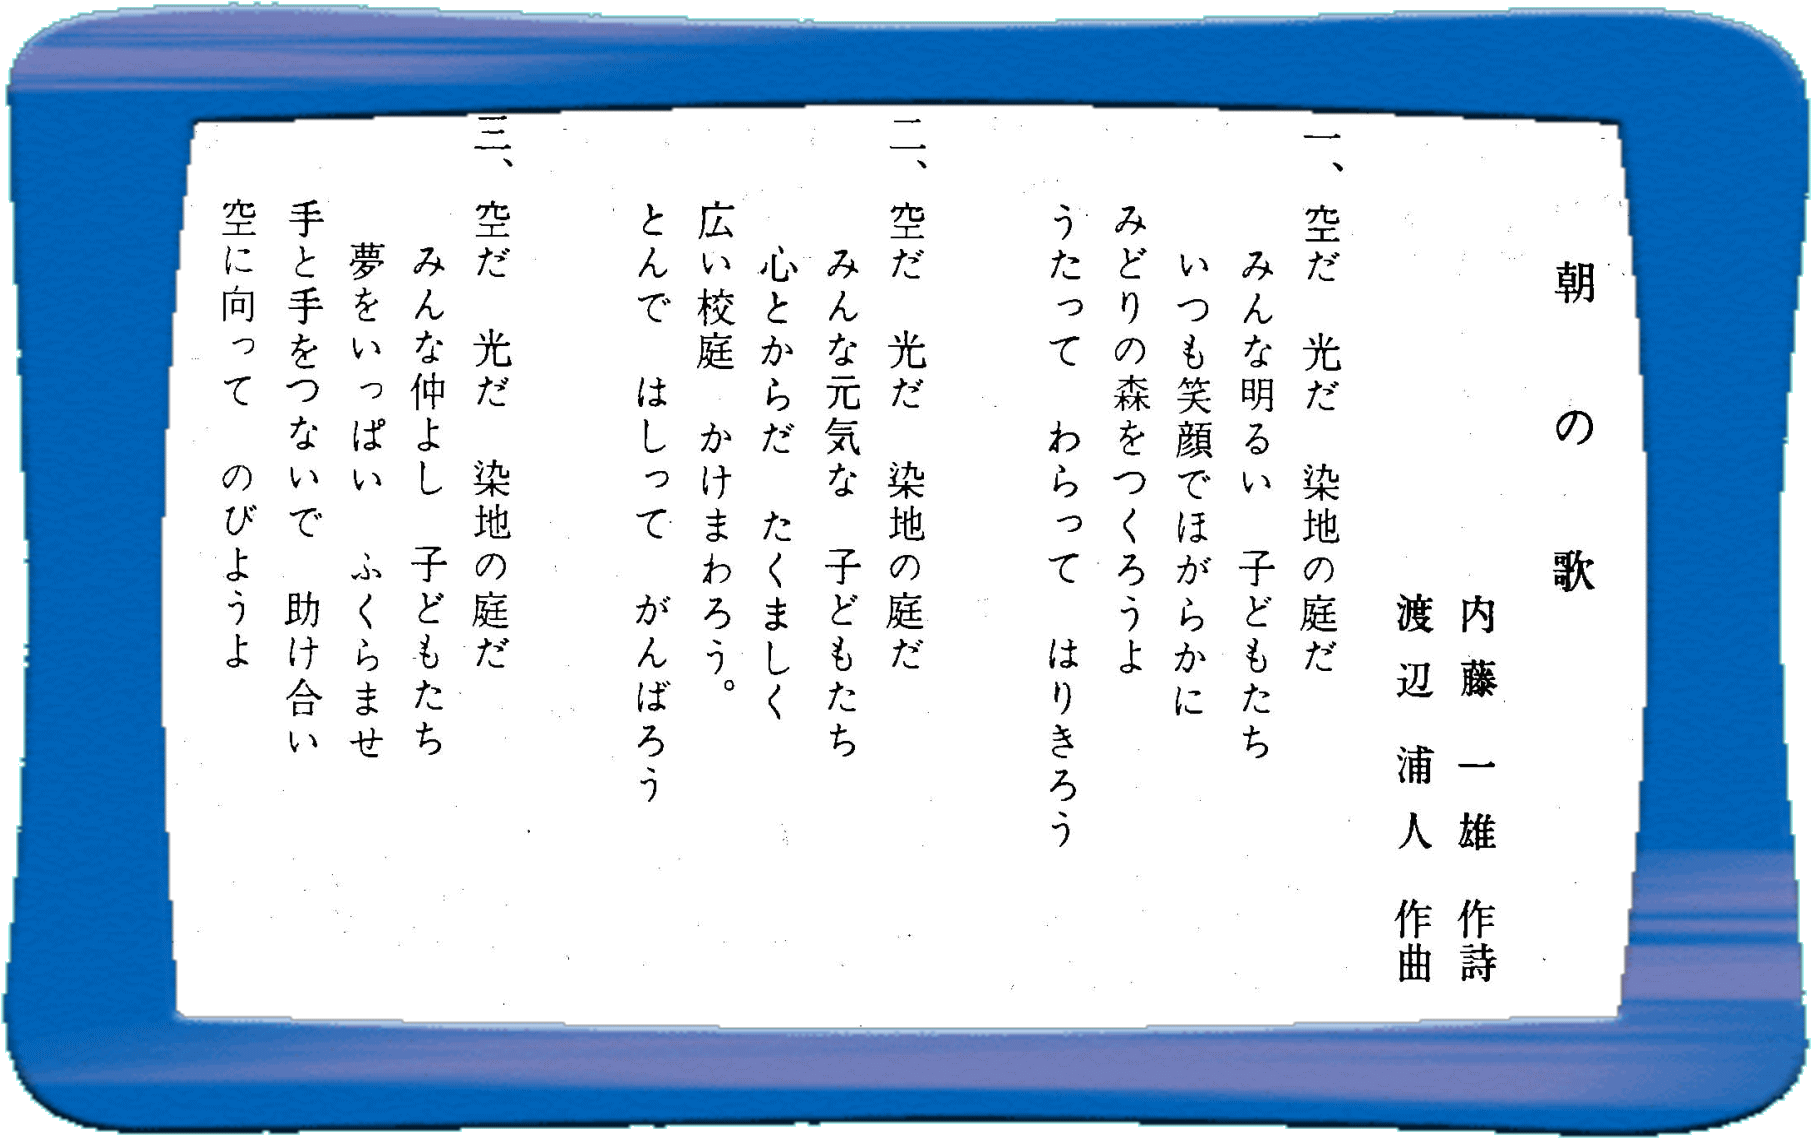 朝の歌
内藤 一雄 作詩
渡辺 浦人 作曲
一、空だ 光だ 染地の庭だ
みんな明るい 子どもたち
いつも笑顔でほがらかに
みどりの森をつくろうよ
うたって わらって はりきろう
二、空だ 光だ 染地の庭だ
みんな元気な 子どもたち
心とからだ たくましく
広い校庭 かけまわろう。
とんで はしって がんばろう
三、空だ 光だ 染地の庭だ
みんな仲よし 子どもたち
夢をいっぱい ふくらませ
手と手をつないで 助け合い
空に向って のびようよ